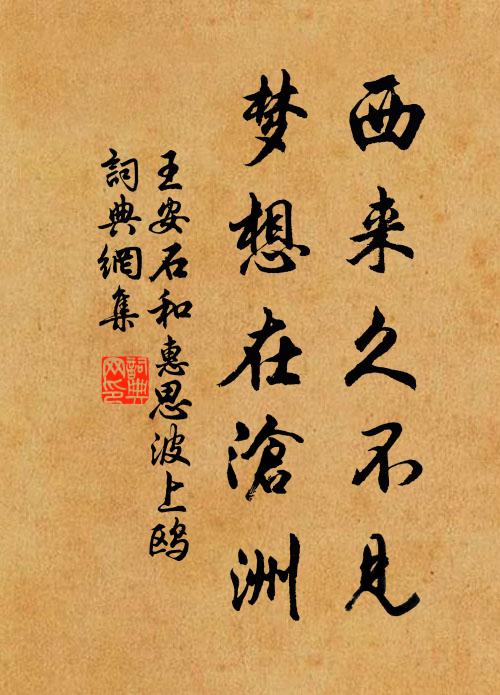 西来久不见
梦想在滄洲
王安石和惠思波上鸥
詞典網集
詞典
网印